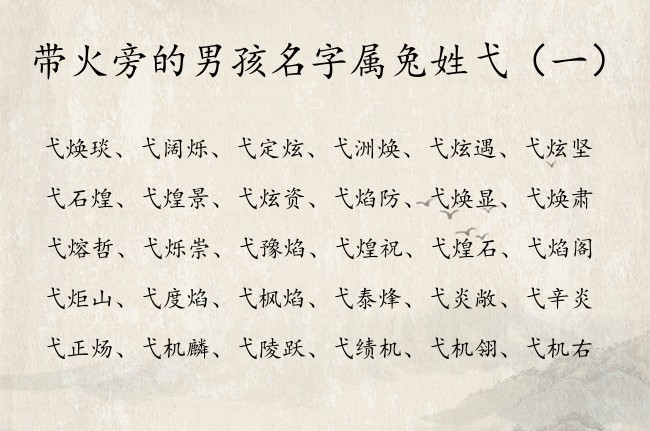 带火旁的男孩名字属兔姓弋（一）
弋焕琰、弋阔烁、弋定炫、弋洲焕、弋炫遇、弋炫坚
弋石煌、弋煌景、弋炫资、弋焰防、弋焕显、弋焕肃
弋熔哲、弋烁崇、弋豫焰、弋煌祝、弋煌石、弋焰阁
弋炬山、弋度焰、弋枫焰、弋泰烽、弋炎敞、弋辛炎
弋正炀、弋机麟、弋陵跃、弋绩机、弋机翎、弋机右